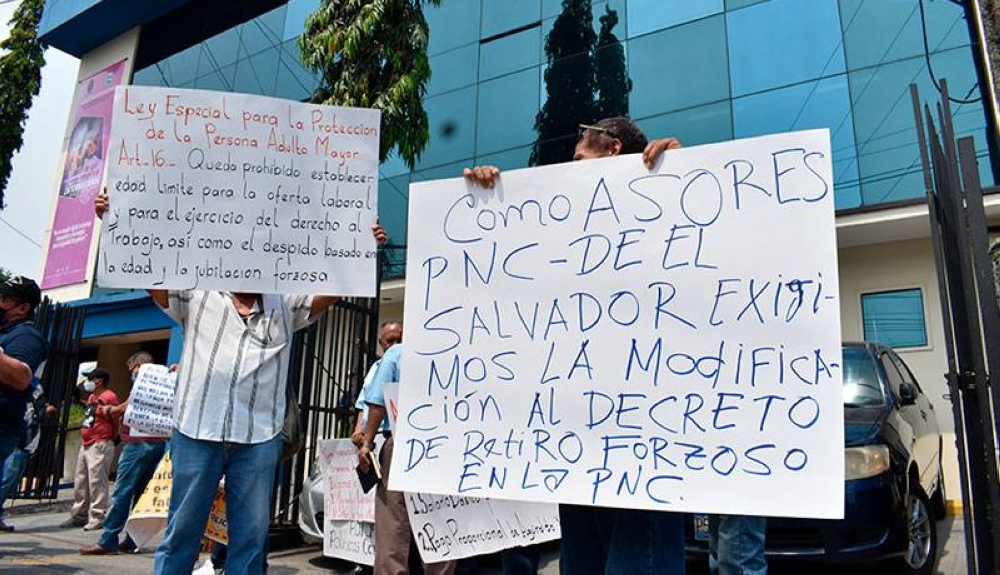 Ley Especial para la Protección
de la Persona Adulto Mayor
Art-16- Queda prohibido establecer
edad limite para la oferta laboral
y para el ejercicio del derecho al
Trabajo, así como el despido basado en
la edad y la jubilacion forzosa
Como ASORES
PNC-DE EL
SALVADOR EXIGI-
MOS LA MODIFICA-
ción AL DECRETO
DE RetiRO FORZOSO
EN La PNC.
2. Pago Proporcional